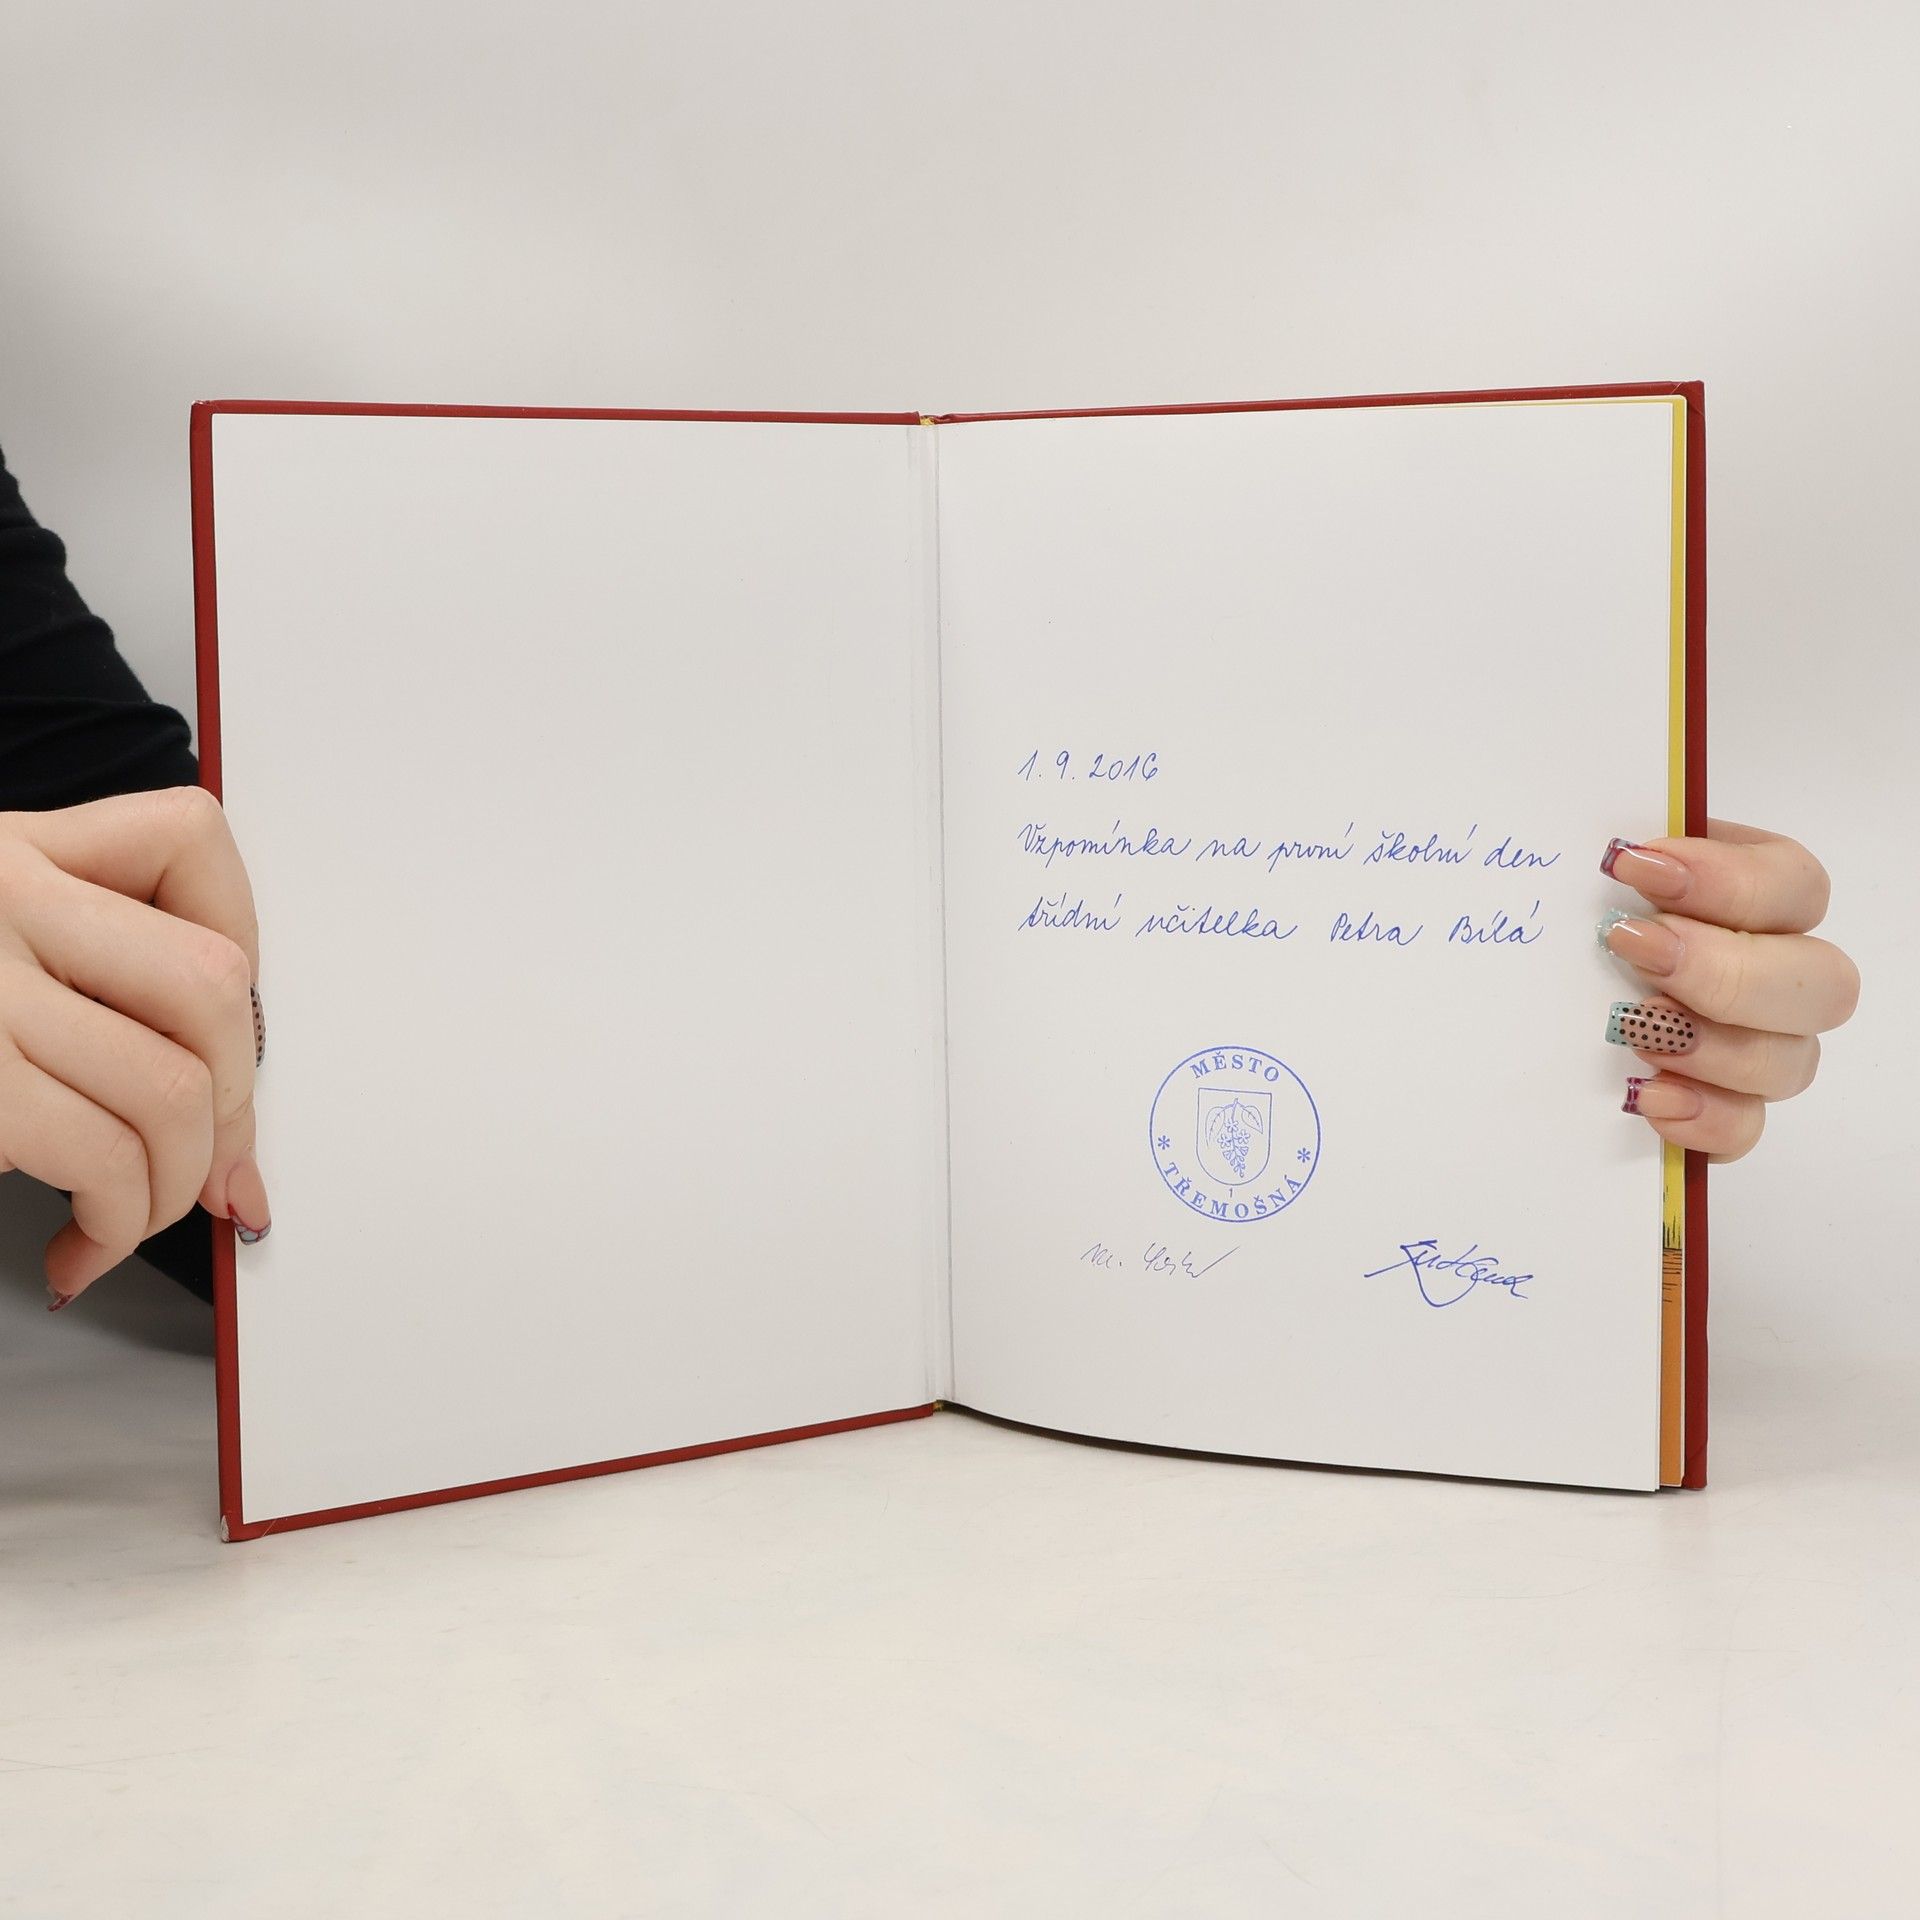 1. 9. 2016
Vzpomínka na první školní den
třídní učitelka Petra Bílá
MĚSTO
* TŘEMOŠNÁ *
1